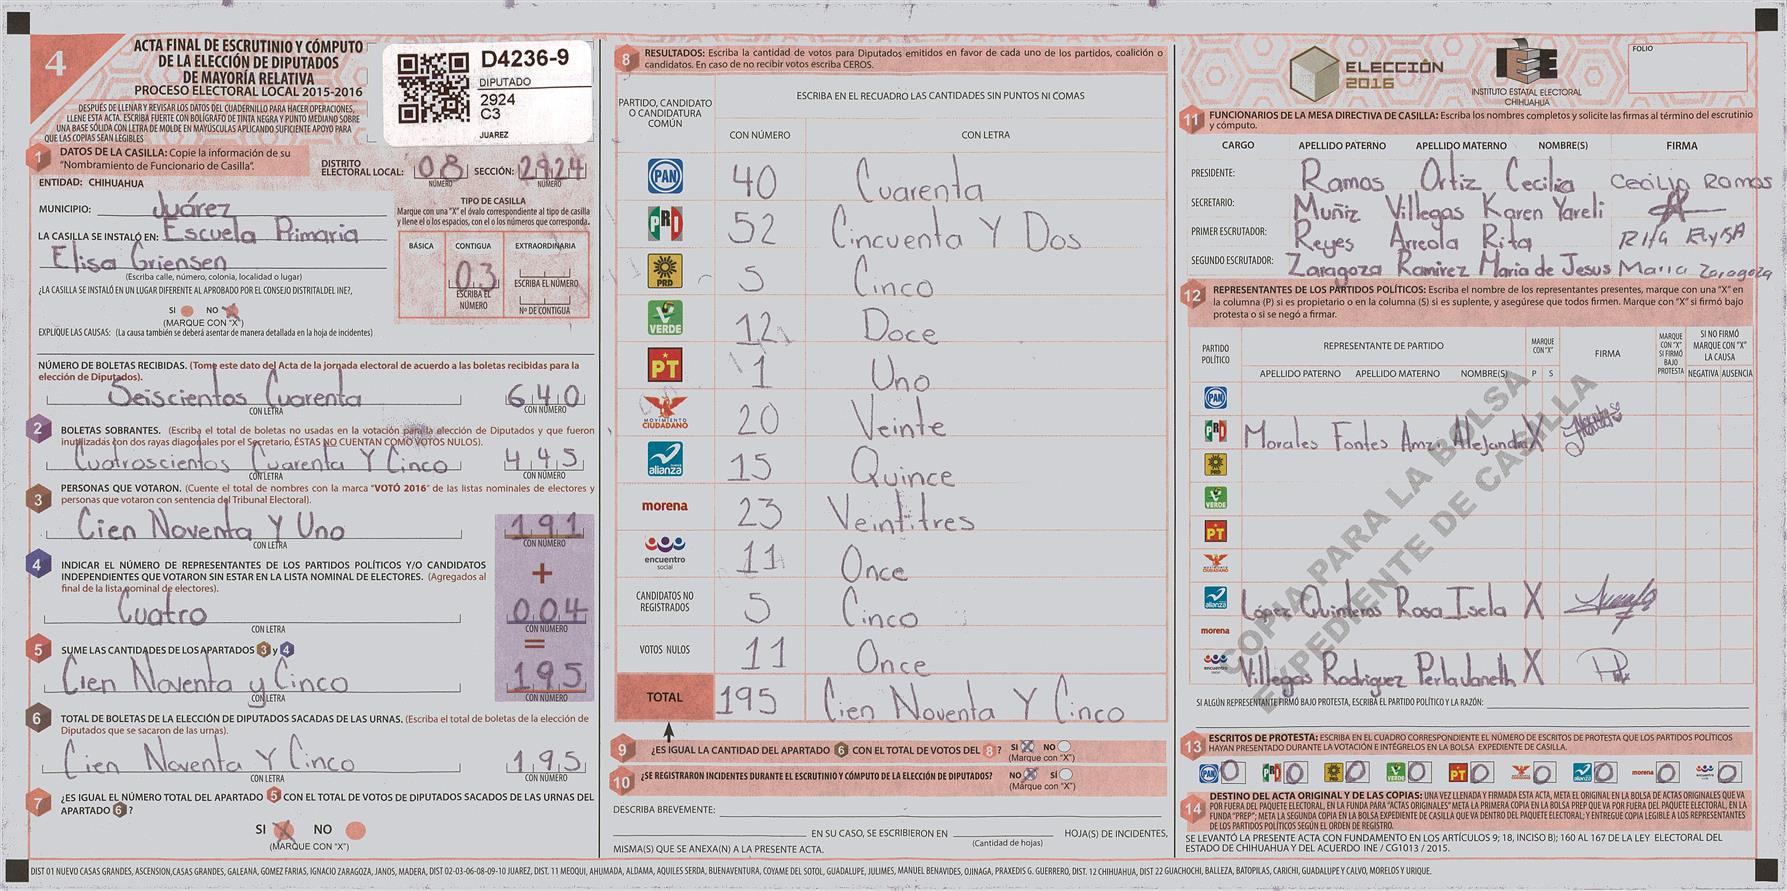 4
ACTA FINAL DE ESCRUTINIO Y CÓMPUTO
DE LA ELECCIÓN DE DIPUTADOS
DE MAYORÍA RELATIVA
PROCESO ELECTORAL LOCAL 2015-2016
DESPUÉS DE LLENAR Y REVISAR LOS DATOS DEL CUADERNILLO PARA HACER OPERACIONES,
LLENE ESTA ACTA. ESCRIBA FUERTE CON BOLÍGRAFO DE TINTA NEGRA Y PUNTO MEDIANO SOBRE
UNA BASE SÓLIDA CON LETRA DE MOLDE EN MAYÚSCULAS APLICANDO SUFICIENTE APOYO PARA
QUE LAS COPIAS SEAN LEGIBLES
D4236-9
DIPUTADO
2924
C3
JUAREZ
1 DATOS DE LA CASILLA: Copie la información de su
"Nombramiento de Funcionario de Casilla".
DISTRITO
ELECTORAL LOCAL: 08 SECCIÓN: 2924
NÚMERO NÚMERO
ENTIDAD: CHIHUAHUA
MUNICIPIO: Juárez
LA CASILLA SE INSTALÓ EN: Escuela Primaria
Elisa Griensen
(Escriba calle, número, colonia, localidad o lugar)
¿LA CASILLA SE INSTALÓ EN UN LUGAR DIFERENTE AL APROBADO POR EL CONSEJO DISTRITAL DEL INE?,
SI NO X
(MARQUE CON "X")
EXPLIQUE LAS CAUSAS: (La causa también se deberá asentar de manera detallada en la hoja de incidentes)
TIPO DE CASILLA
Marque con una "X" el óvalo correspondiente al tipo de casilla
y llene el o los espacios, con el o los números que corresponda.
BÁSICA CONTIGUA EXTRAORDINARIA
03
ESCRIBA EL NÚMERO
ESCRIBA EL NÚMERO
Nº DE CONTIGUA
NÚMERO DE BOLETAS RECIBIDAS. (Tome este dato del Acta de la jornada electoral de acuerdo a las boletas recibidas para la
elección de Diputados).
Seiscientos Cuarenta 640
CON LETRA CON NÚMERO
2 BOLETAS SOBRANTES. (Escriba el total de boletas no usadas en la votación para la elección de Diputados y que fueron
inutilizadas con dos rayas diagonales por el Secretario, ÉSTAS NO CUENTAN COMO VOTOS NULOS).
Cuatroscientos Cuarenta Y Cinco 445
CON LETRA CON NÚMERO
3 PERSONAS QUE VOTARON. (Cuente el total de nombres con la marca "VOTÓ 2016" de las listas nominales de electores y
personas que votaron con sentencia del Tribunal Electoral).
Cien Noventa Y Uno 191
CON LETRA CON NÚMERO
+
4 INDICAR EL NÚMERO DE REPRESENTANTES DE LOS PARTIDOS POLÍTICOS Y/O CANDIDATOS
INDEPENDIENTES QUE VOTARON SIN ESTAR EN LA LISTA NOMINAL DE ELECTORES. (Agregados al
final de la lista nominal de electores).
Cuatro 004
CON LETRA CON NÚMERO
=
5 SUME LAS CANTIDADES DE LOS APARTADOS 3 y 4
Cien Noventa y Cinco 195
CON LETRA CON NÚMERO
6 TOTAL DE BOLETAS DE LA ELECCIÓN DE DIPUTADOS SACADAS DE LAS URNAS. (Escriba el total de boletas de la elección de
Diputados que se sacaron de las urnas).
Cien Noventa Y Cinco 195
CON LETRA CON NÚMERO
7 ¿ES IGUAL EL NÚMERO TOTAL DEL APARTADO 5 CON EL TOTAL DE VOTOS DE DIPUTADOS SACADOS DE LAS URNAS DEL
APARTADO 6?
SI X NO
(MARQUE CON "X")
8 RESULTADOS: Escriba la cantidad de votos para Diputados emitidos en favor de cada uno de los partidos, coalición o
candidatos. En caso de no recibir votos escriba CEROS.
PARTIDO, CANDIDATO
O CANDIDATURA
COMÚN
ESCRIBA EN EL RECUADRO LAS CANTIDADES SIN PUNTOS NI COMAS
CON NÚMERO CON LETRA
PAN 40 Cuarenta
PRI 52 Cincuenta Y Dos
PRD 5 Cinco
VERDE 12 Doce
PT 1 Uno
MOVIMIENTO CIUDADANO 20 Veinte
alianza 15 Quince
morena 23 Veintitres
encuentro social 11 Once
CANDIDATOS NO
REGISTRADOS 5 Cinco
VOTOS NULOS 11 Once
TOTAL 195 Cien Noventa Y Cinco
9 ¿ES IGUAL LA CANTIDAD DEL APARTADO 6 CON EL TOTAL DE VOTOS DEL 8? SI X NO
(Marque con "X")
10 ¿SE REGISTRARON INCIDENTES DURANTE EL ESCRUTINIO Y CÓMPUTO DE LA ELECCIÓN DE DIPUTADOS? NO X SÍ
(Marque con "X")
DESCRIBA BREVEMENTE:
EN SU CASO, SE ESCRIBIERON EN HOJA(S) DE INCIDENTES,
(Cantidad de hojas)
MISMA(S) QUE SE ANEXA(N) A LA PRESENTE ACTA.
ELECCIÓN
2016
IEE
INSTITUTO ESTATAL ELECTORAL
CHIHUAHUA
FOLIO
11 FUNCIONARIOS DE LA MESA DIRECTIVA DE CASILLA: Escriba los nombres completos y solicite las firmas al término del escrutinio
y cómputo.
CARGO APELLIDO PATERNO APELLIDO MATERNO NOMBRE(S) FIRMA
PRESIDENTE: Ramos Ortiz Cecilia Cecilia Ramos
SECRETARIO: Muñiz Villegas Karen Yareli
PRIMER ESCRUTADOR: Reyes Arreola Rita
SEGUNDO ESCRUTADOR: Zaragoza Ramirez Maria de Jesus Maria Zaragoza
12 REPRESENTANTES DE LOS PARTIDOS POLÍTICOS: Escriba el nombre de los representantes presentes, marque con una "X" en
la columna (P) si es propietario o en la columna (S) si es suplente, y asegúrese que todos firmen. Marque con "X" si firmó bajo
protesta o si se negó a firmar.
PARTIDO
POLÍTICO
REPRESENTANTE DE PARTIDO
APELLIDO PATERNO APELLIDO MATERNO NOMBRE(S)
MARQUE
CON "X"
P S
FIRMA
MARQUE
CON "X"
SI FIRMÓ
BAJO
PROTESTA
SI NO FIRMÓ
MARQUE CON "X"
LA CAUSA
NEGATIVA AUSENCIA
PAN
PRI Morales Fontes Alejandra X
PRD
VERDE
PT
MOVIMIENTO CIUDADANO
alianza López Quinteros Rosa Isela X
morena
encuentro social Villegas Rodriguez Perla Janeth X
COPIA PARA LA BOLSA
EXPEDIENTE DE CASILLA
SI ALGÚN REPRESENTANTE FIRMÓ BAJO PROTESTA, ESCRIBA EL PARTIDO POLÍTICO Y LA RAZÓN:
13 ESCRITOS DE PROTESTA: ESCRIBA EN EL CUADRO CORRESPONDIENTE EL NÚMERO DE ESCRITOS DE PROTESTA QUE LOS PARTIDOS POLÍTICOS
HAYAN PRESENTADO DURANTE LA VOTACIÓN E INTÉGRELOS EN LA BOLSA EXPEDIENTE DE CASILLA.
PAN 0 PRI 0 PRD 0 VERDE 0 PT 0 0 alianza 0 morena 0 0
14 DESTINO DEL ACTA ORIGINAL Y DE LAS COPIAS: UNA VEZ LLENADA Y FIRMADA ESTA ACTA, META EL ORIGINAL EN LA BOLSA DE ACTAS ORIGINALES QUE VA
POR FUERA DEL PAQUETE ELECTORAL, EN LA FUNDA PARA "ACTAS ORIGINALES" META LA PRIMERA COPIA EN LA BOLSA PREP QUE VA POR FUERA DEL PAQUETE ELECTORAL, EN LA
FUNDA "PREP"; META LA SEGUNDA COPIA EN LA BOLSA EXPEDIENTE DE CASILLA QUE VA DENTRO DEL PAQUETE ELECTORAL; Y ENTREGUE COPIA LEGIBLE A LOS REPRESENTANTES
DE LOS PARTIDOS POLÍTICOS SEGÚN EL ORDEN DE REGISTRO.
SE LEVANTÓ LA PRESENTE ACTA CON FUNDAMENTO EN LOS ARTÍCULOS 9; 18, INCISO B); 160 AL 167 DE LA LEY ELECTORAL DEL
ESTADO DE CHIHUAHUA Y DEL ACUERDO INE / CG1013 / 2015.
DIST 01 NUEVO CASAS GRANDES, ASCENSION, CASAS GRANDES, GALEANA, GOMEZ FARIAS, IGNACIO ZARAGOZA, JANOS, MADERA, DIST 02-03-06-08-09-10 JUAREZ, DIST. 11 MEOQUI, AHUMADA, ALDAMA, AQUILES SERDA, BUENAVENTURA, COYAME DEL SOTOL, GUADALUPE, JULIMES, MANUEL BENAVIDES, OJINAGA, PRAXEDIS G. GUERRERO, DIST. 12 CHIHUAHUA, DIST 22 GUACHOCHI, BALLEZA, BATOPILAS, CARICHI, GUADALUPE Y CALVO, MORELOS Y URIQUE.